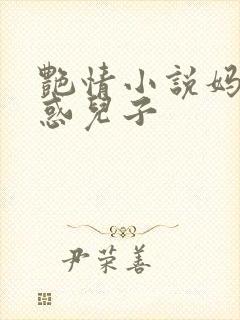 艷情小說妈
惑兒子
尹荣善